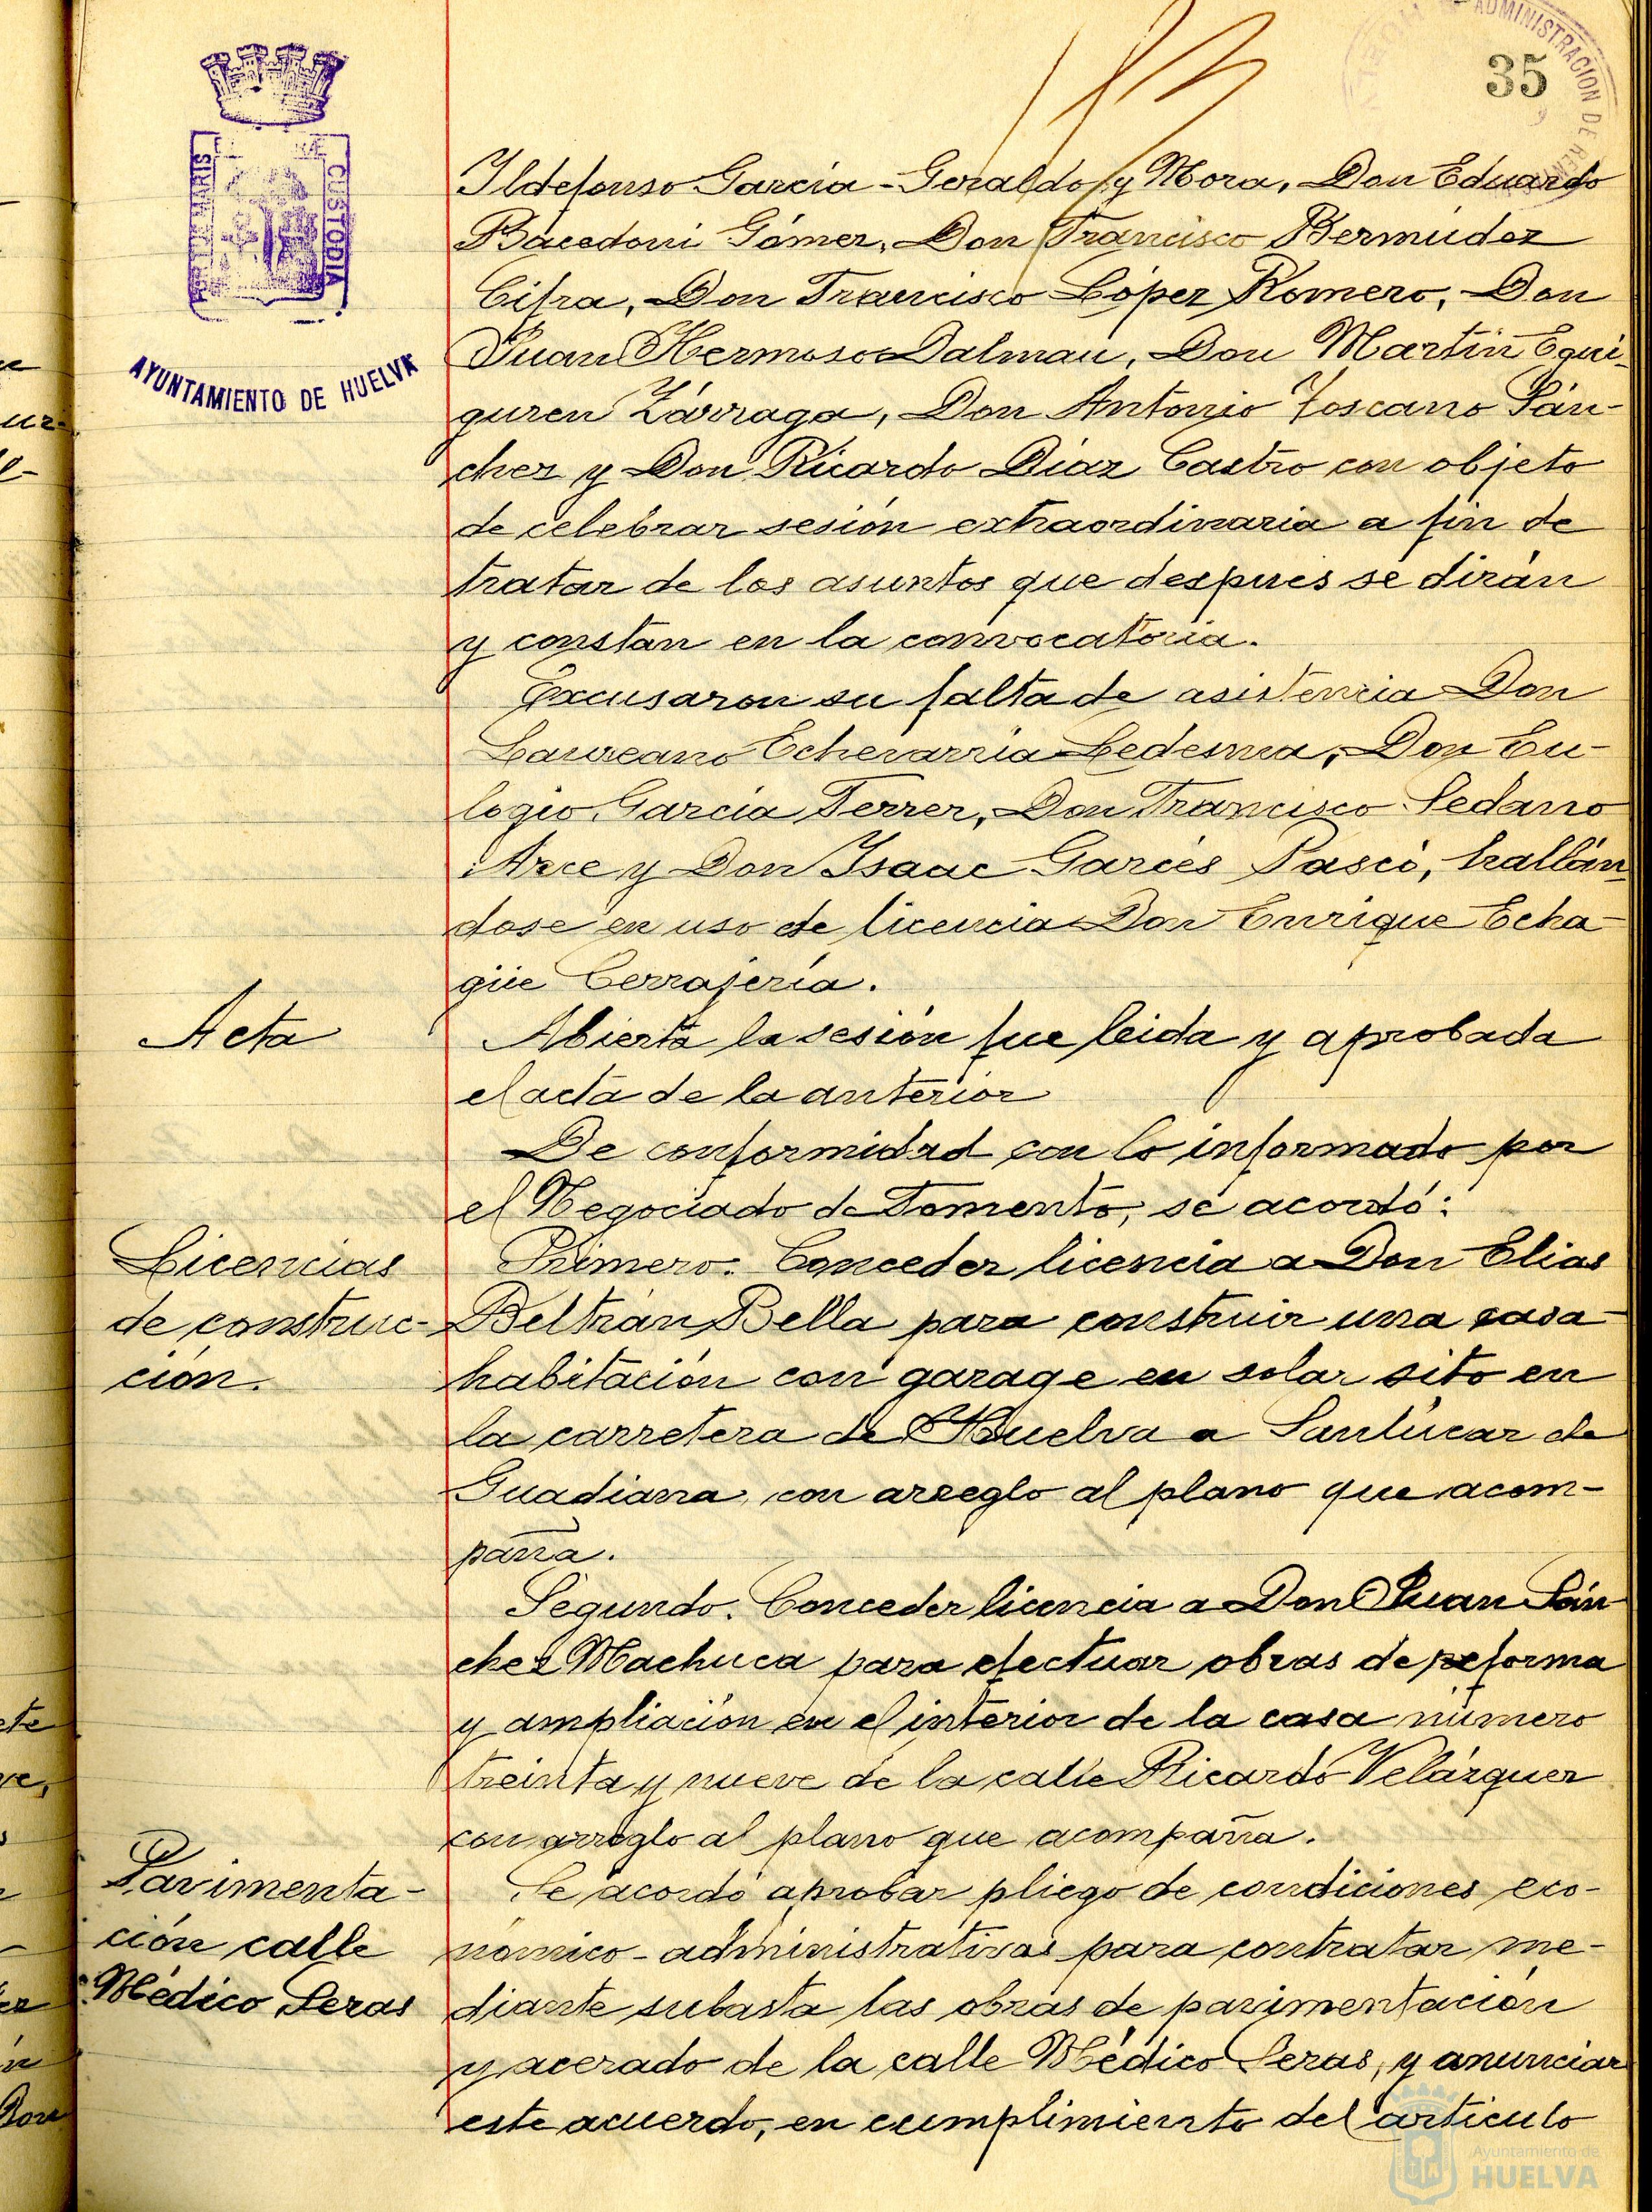 35
ADMINISTRACION DE REN
PORTUS MARIS
CUSTODIA
AYUNTAMIENTO DE HUELVA
Ildefonso García-Geraldo y Mora, Don Eduardo
Bacedoni Gómez, Don Francisco Bermúdez
Cifra, Don Francisco López Romero, Don
Juan Hermoso Dalmau, Don Martín Egui-
guren Zárraga, Don Antonio Toscano Sán-
chez y Don Ricardo Díaz Castro con objeto
de celebrar sesión extraordinaria a fin de
tratar de los asuntos que después se dirán
y constan en la convocatoria.
Excusaron su falta de asistencia Don
Laureano Echevarría Ledesma, Don Eu-
logio García Ferrer, Don Francisco Sedano
Arce y Don Isaac Garcés Pascó, hallán-
dose en uso de licencia Don Enrique Echa-
güe Cerrajería.
Acta
Abierta la sesión fue leida y aprobada
el acta de la anterior
De conformidad con lo informado por
el Negociado de Fomento, se acordó:
Licencias
de construc-
ción.
Primero. Conceder licencia a Don Elias
Beltrán Bella para construir una casa-
habitación con garage en solar sito en
la carretera de Huelva a Sanlúcar de
Guadiana, con arreglo al plano que acom-
paña.
Segundo. Conceder licencia a Don Juan Sán-
chez Machuca para efectuar obras de reforma
y ampliación en el interior de la casa número
treinta y nueve de la calle Ricardo Velázquez
con arreglo al plano que acompaña.
Pavimenta-
ción calle
Médico Seras
Se acordó aprobar pliego de condiciones eco-
nómico-administrativas para contratar me-
diante subasta las obras de pavimentación
y acerado de la calle Médico Seras, y anunciar
este acuerdo, en cumplimiento del artículo
Ayuntamiento de
HUELVA